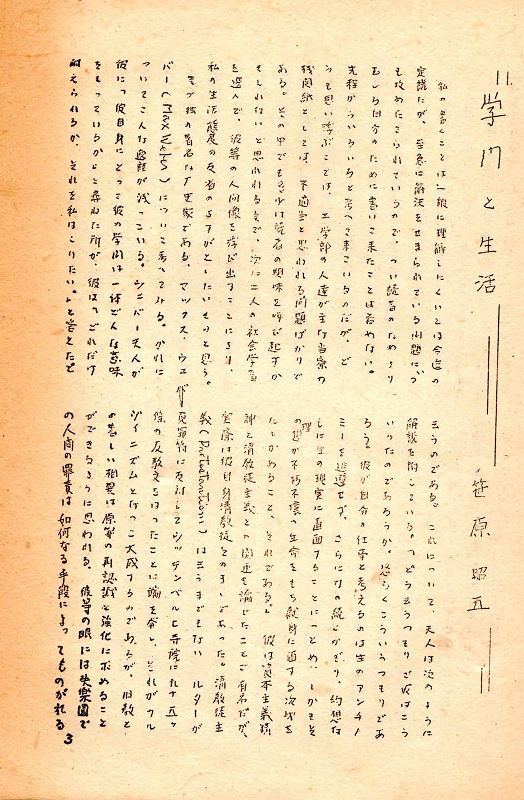 学問と生活
笹原昭五
私の書くことは一般に理解しにくいとは今迄の
定説だが、至急に解決をせまられている問題につ
も攻めたてられているので、つい読者のためより
むしろ自分のために書いて来たことは否めない。
先程からいろいろと考へて来ているのだが、ど
うも思い浮ぶことは、工学部の人達が主な当察の
機関紙としては、不適当と思われる問題ばかりで
ある。その中でも多少は読者の興味を呼び起すか
もしれないと思われる意味で、次に二人の社会学者
を選んで、彼等の人間像を浮び出すことにより、
私の生活態度の反省のよすがとしたいものと思う。
先づ独の著名な歴史家である、マックス・ウェ
バー(Max Weber)について考へてみる。かれに
ついてこんな逸話が残っている。シニバー夫人が
彼に「彼自身にとって彼の学問は一体どんな意味
をもっているか」と尋ねた所が、彼は「どれだけ
耐えられるか、それを私はしりたい。」と答えたと
云うのである。これについて、夫人は次のように
解説を附している。「どう云うつもりで彼はこう
いったのであろうか。恐らくこういうつもりであ
ろう。彼が自分の仕事と考えるのは生のアンチノ
ミーを逃避せず、さらに力の続くかぎり、幻想な
しに生の現実に直面することにつとめ、しかもそ
の理想が不朽不壊の生命をもち献身に値する次第を
たしかめること、それである。」彼は資本主義精
神と清教徒主義との関連を論じたことで有名だが、
実際は彼自身清教徒そのものであった。清教徒主
義(Protestantism)は云うまでもない ルターが
免罪符に反対してウッテンベルヒ寺院に九十五ヶ
條の反駁文をはったことに端を発し、それがカル
ヴィニズムとなって大成するのであるが、旧教と
の著しい相異は原罪の再認識と強化に求めること
ができるように思われる。彼等の眼には失楽園で
の人間の罪責は如何なる手段によってものがれる
3